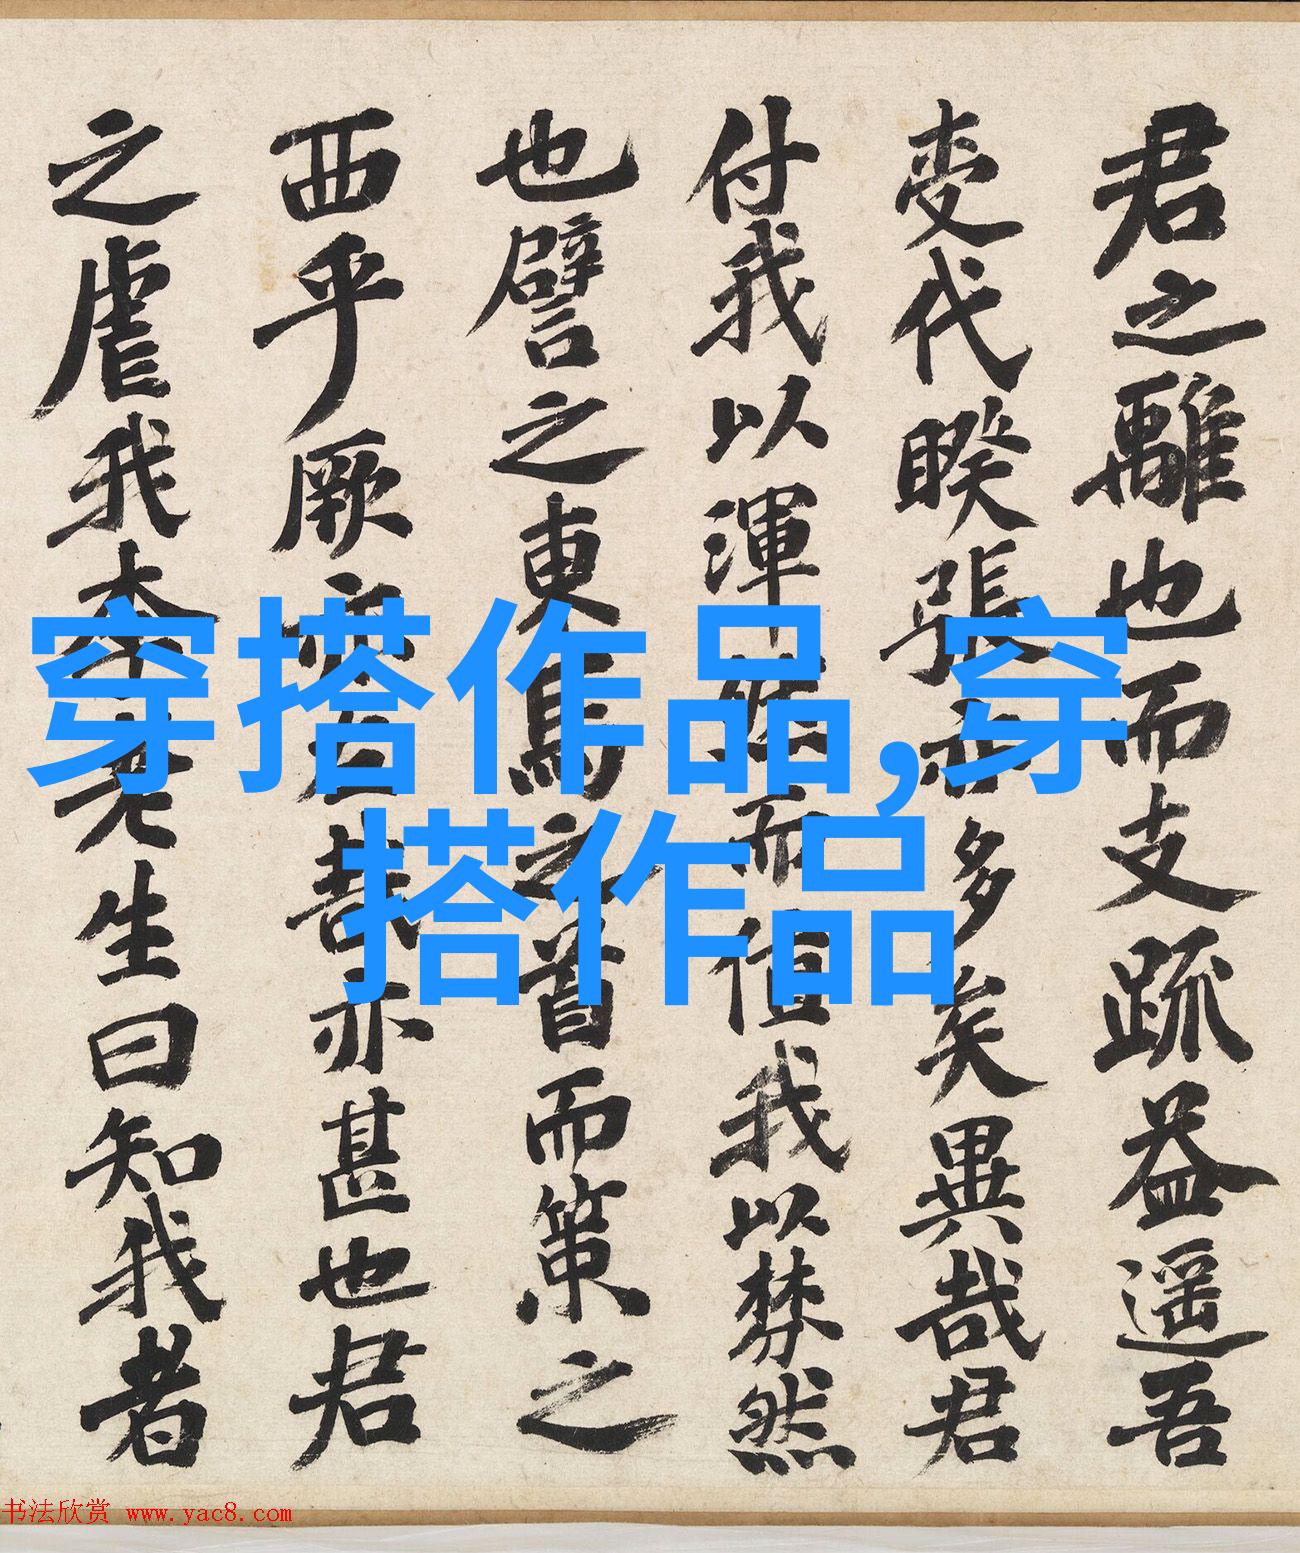 君之離也而支疏益遥吾
変代暌張亦多矣異哉君
付我以渾
而值我以棼然
也譬之東馬之首而策之
西乎厥
哉亦甚也君
之虐我
老生曰知我者
穿搭作品,穿
搭作品
书法欣赏 www.yac8.com